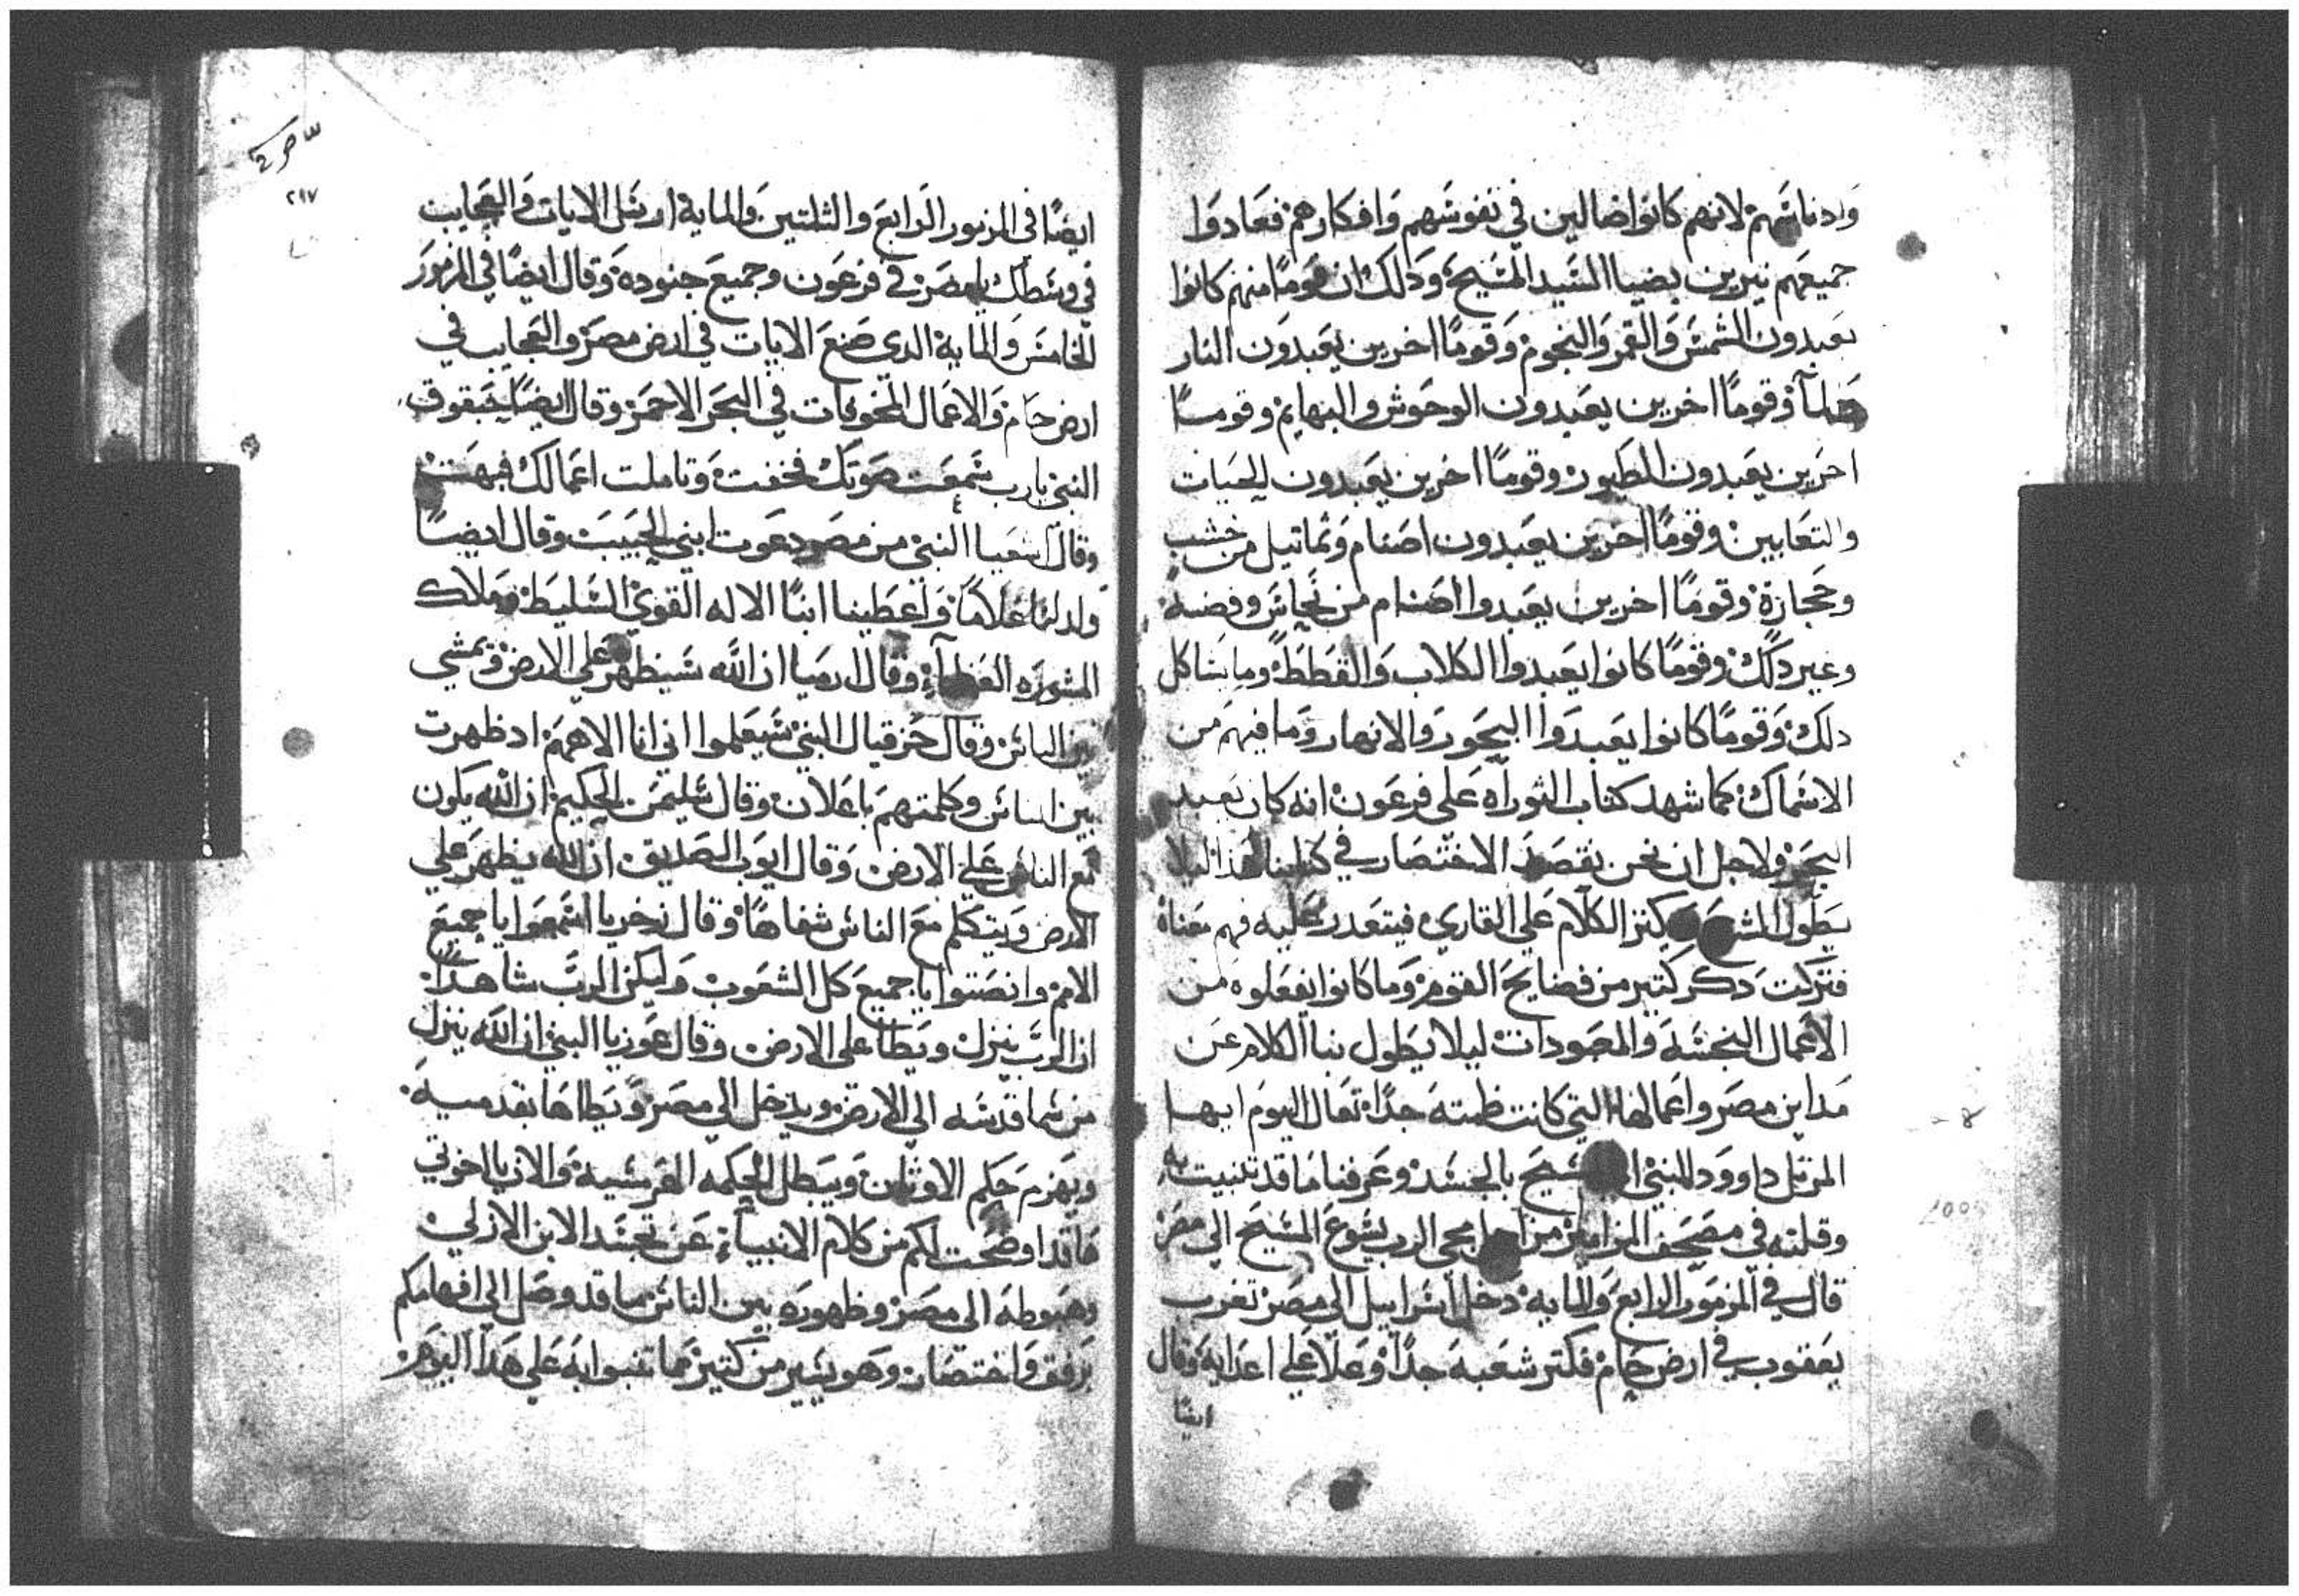 وادناسهم لانهم كانوا ضالين في نفوسهم وافكارهم فعادوا
جميعهم نيرين بضيا السيد المسيح ودلك ان قوما منهم كانوا
يعبدون الشمس والقمر والنجوم وقوما اخرين يعبدون النار
وقوما اخرين يعبدون الوحوش والبهايم وقوما
اخرين يعبدون الطيور وقوما اخرين يعبدون الحيات
والتعابين وقوما اخرين يعبدون اصنام وتماتيل من خشب
وحجارة وقوما اخرين يعبدوا اصنام من نحاس وفضه
وغير دلك وقوما كانوا يعبدوا الكلاب والقطط وما يشاكل
دلك وقوما كانوا يعبدوا البحور والانهار وما فيهم من
الاسماك كما شهد كتاب التوراه على فرعون انه كان يعبد
البحر ولاجل ان نحن نقصد الاختصار في كتابنا هدا ليلا
يطول ويكتر الكلام على القاري فيتعدر عليه فهم معناه
فتركت دكر كتير من فضايح القوم وما كانوا يفعلوه من
الاعمال النجسه والمصودات ليلا يطول بنا الكلام عن
مداين مصر واعمالها التي كانت ظمته جدا تعال اليوم ايها
المرتل داوود النبي المسيح بالجسد وعرفنا ما قد تنبيت به
وقلته في مصحف المزامير من اجل مجي الرب يسوع المسيح الي مصر
قال في المزمور الرابع والمايه دخل اسراييل الى مصر تغرب
يعقوب في ارض حام فكتر شعبه جدا وعلا على اعدايه وقال
ايضا
٢١٧
ايضا في المزمور الرابع والتلتين والمايه ارسل الايات والعجايب
في وسطك يا مصر في فرعون وجميع جنوده وقال ايضا في المزمور
الخامس والمايه الدي صنع الايات في ارض مصر والعجايب في
ارض حام والاعمال المخوفات في البحر الاحمر وقال ايضا حبقوق
النبي يارب سمعت صوتك فخفت وتاملت اعمالك فبهت
وقال اشعيا النبي من مصر دعوت ابني الحبيب وقال ايضا
ولد لنا غلاما واعطينا ابنا الاله القوي السليط وملاك
المشوره العظماء وقال ارميا ان الله سيظهر على الارض ويمشي
بين الناس وقال حزقيال النبي سيعلموا اني انا الاههم اد ظهرت
بين الناس وكلمتهم باعلان وقال سليمن الحكيم ان الله يكون
مع الناس على الارض وقال ايوب الصديق ان الله يظهر على
الارض ويتكلم مع الناس شفاها وقال زخريا اسمعوا يا جميع
الامم وانصتوا يا جميع كل الشعوب وليكن الرب شاهدا
ان الرب ينزل ويطا على الارض وقال عوزيا النبي ان الله ينزل
من سما قدسه الي الارض ويدخل الي مصر ويطاها بقدميه
ويهزم حكم الاوثان ويبطل الحكمه الفرسيه والان يا اخوتي
فاقد اوضحت لكم من كلام الانبياء عن تجسد الابن الازلي
وهبوطه الى مصر وظهوره بين الناس ما قد وصل الي افهامكم
برفق واختصار وهو يسير من كتير مما تنبوا به على هدا اليوم